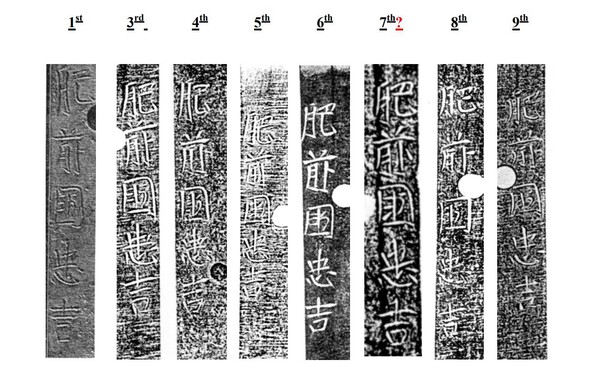 1st 3rd 4th 5th 6th 7th? 8th 9th
肥前國忠吉
肥前國忠吉
肥前國忠吉
肥前國忠吉
肥前国忠吉
肥前國忠吉
肥前国忠吉
肥前国忠吉